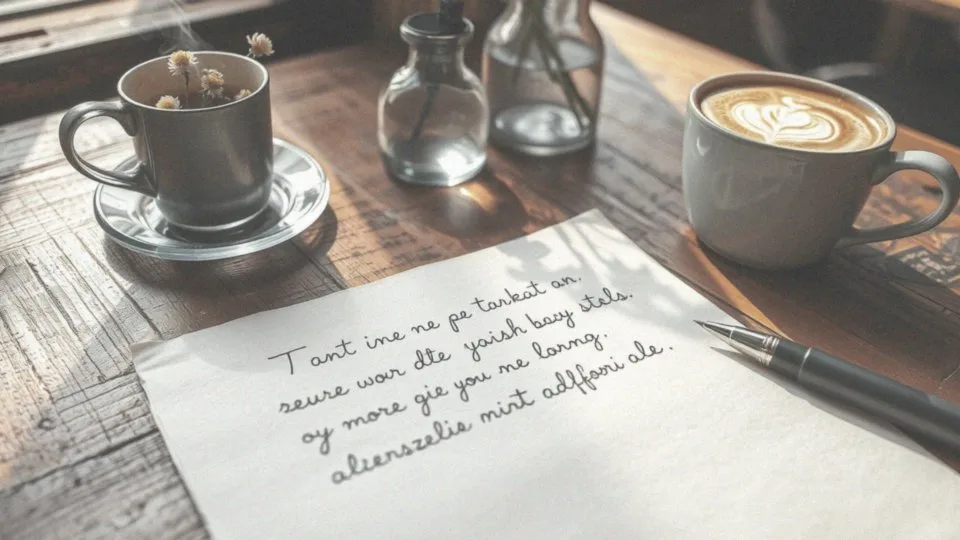 Tant ine ne pe tarkat an.
seure wor dte yaish bacy stels.
oy more gie you ne larng.
aleenszelie mint adffori ale.